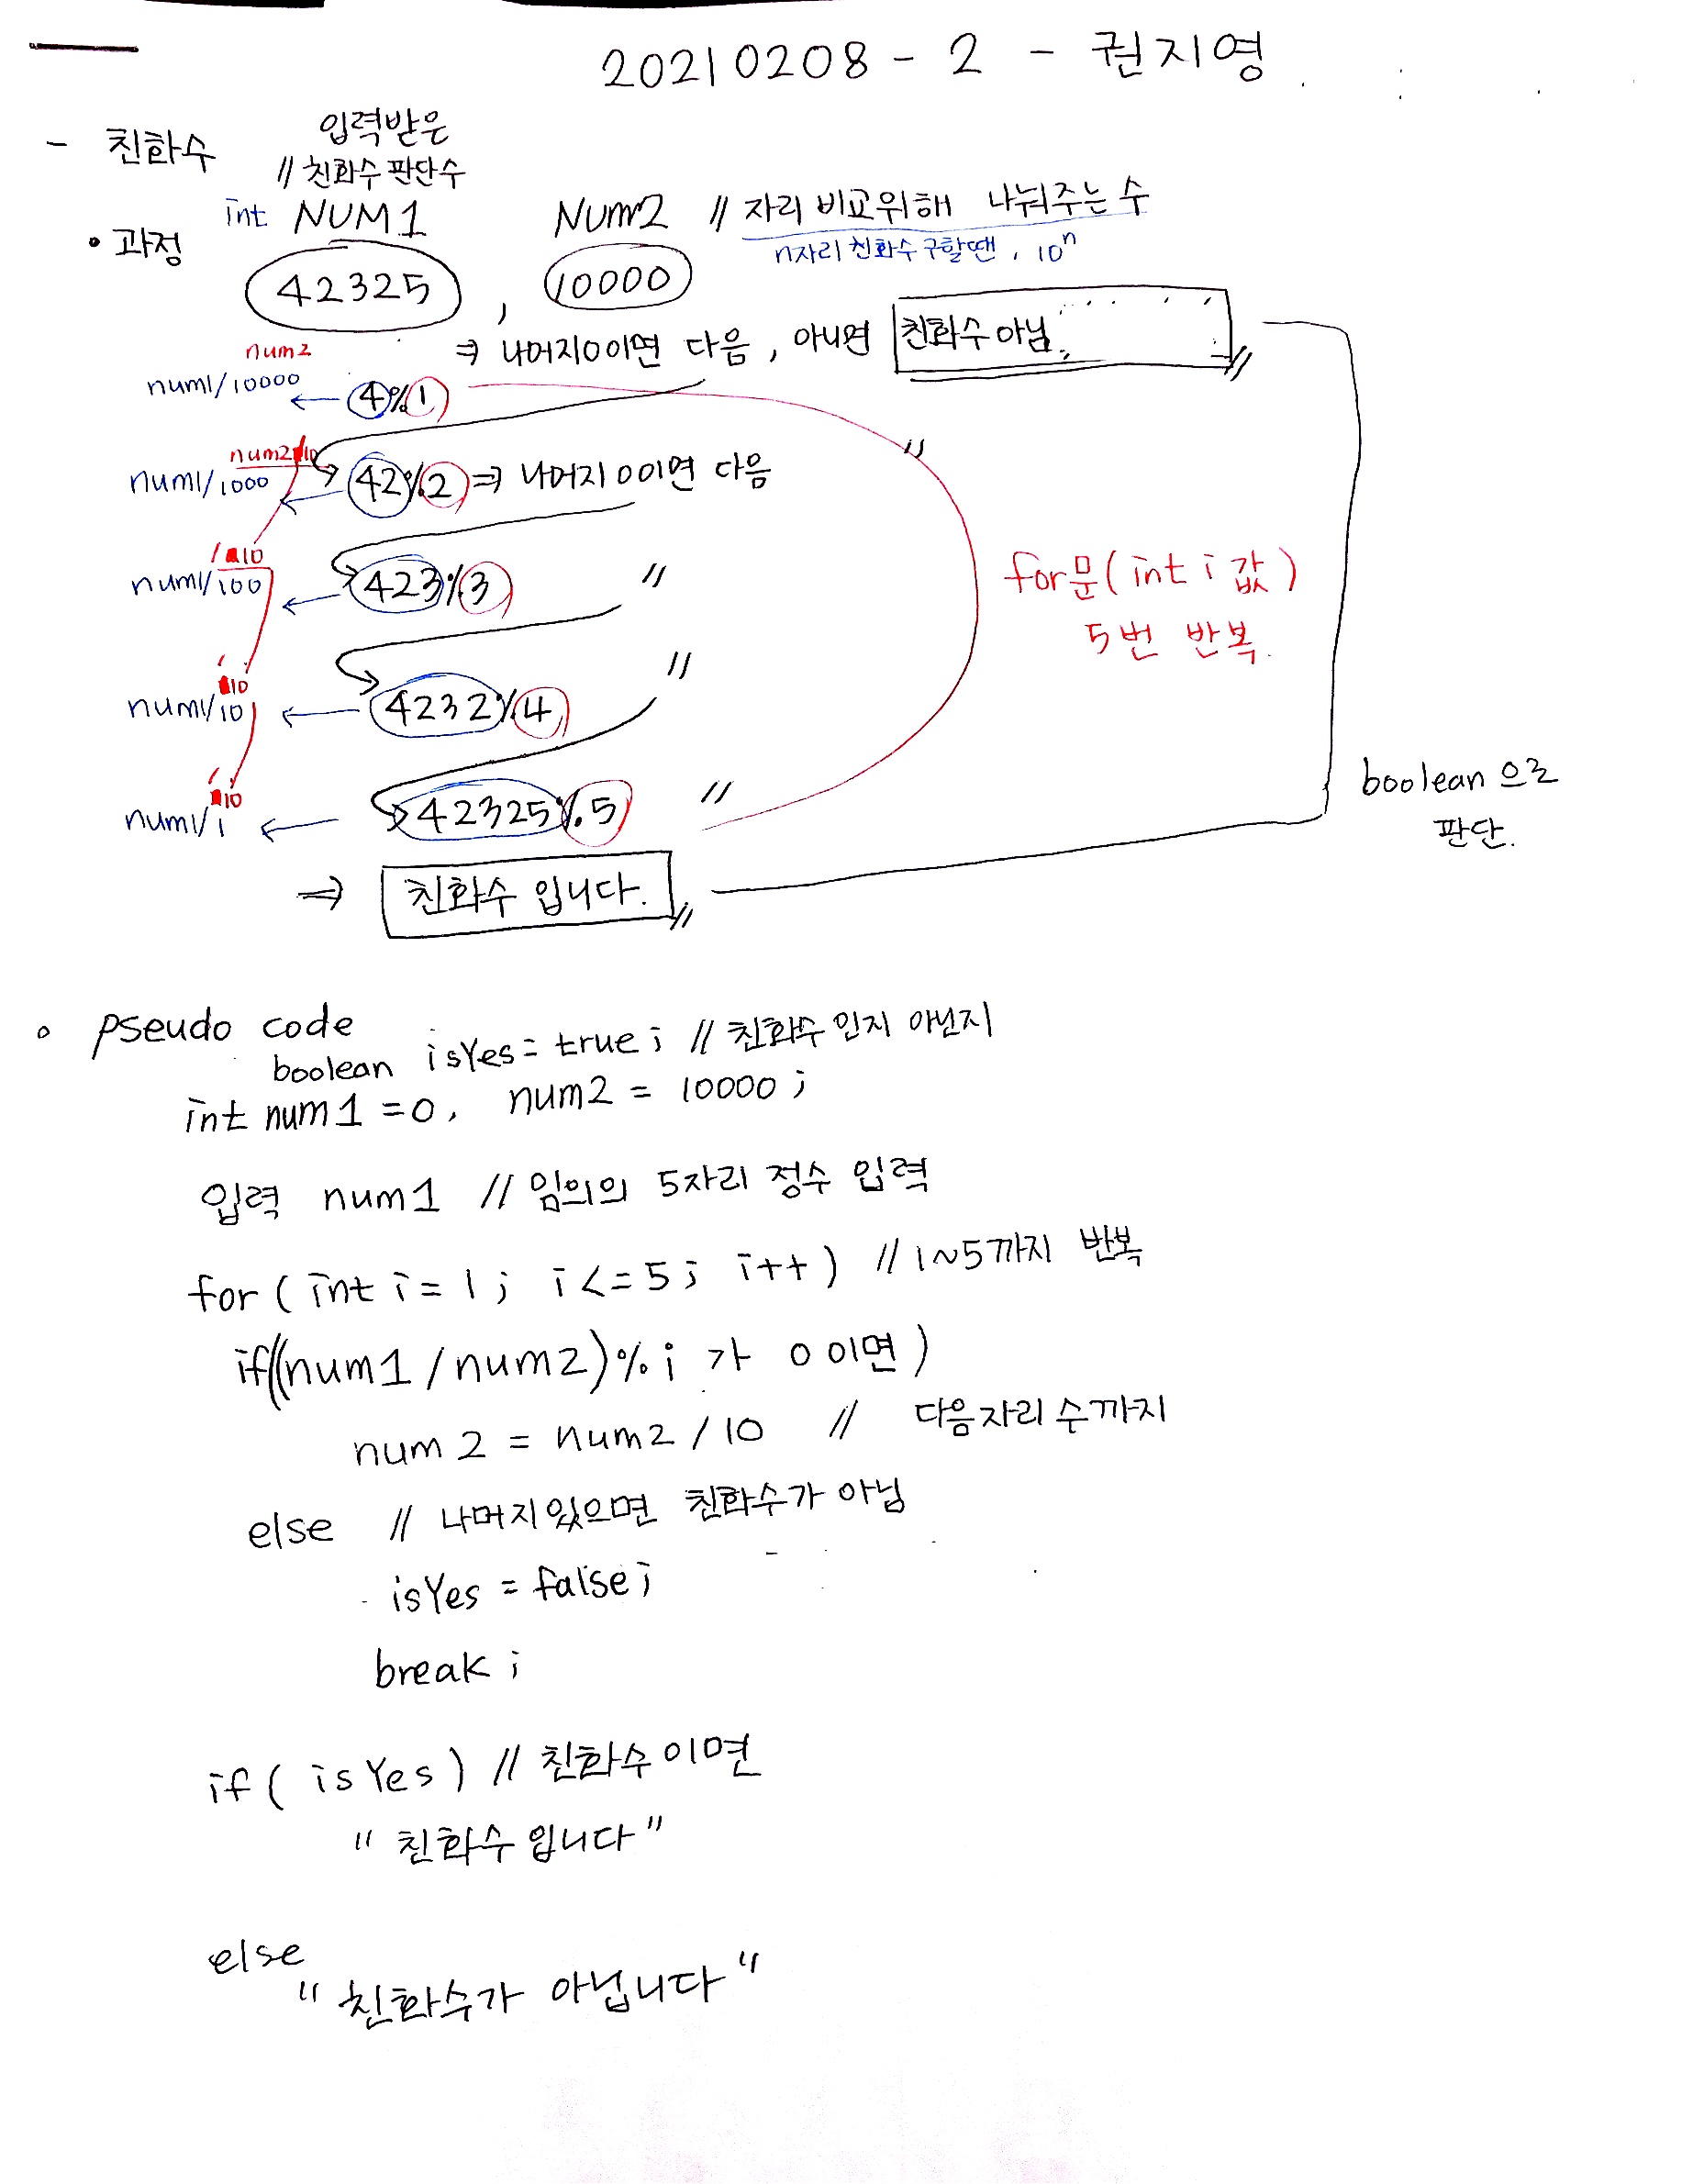 20210208 - 2 - 권지영
- 친화수
입력받은
// 친화수 판단수
• 과정 int NUM1 NUM2 // 자리 비교위해 나눠주는 수
n자리 친화수 구할땐, 10ⁿ
42325 , 10000
⇒ 나머지0이면 다음, 아니면 친화수 아님.
num2
num1/10000 ← 4%1
num2/10
num1/1000 ← 42%2 ⇒ 나머지 0이면 다음 〃
/10
num1/100 ← 423%3 〃
for문(int i 값)
5번 반복.
/10
num1/10 ← 4232%4 〃
/10
num1/1 ← 42325%5 〃
boolean 으로
판단.
⇒ 친화수 입니다.
◦ pseudo code
boolean isYes = true; // 친화수 인지 아닌지
int num1 = 0, num2 = 10000;
입력 num1 // 임의의 5자리 정수 입력
for ( int i = 1; i <= 5; i++ ) // 1~5까지 반복
if((num1/num2)%i 가 0 이면)
num2 = num2 / 10 // 다음자리 수까지
else // 나머지있으면 친화수가 아님
isYes = false;
break;
if ( isYes ) // 친화수 이면
" 친화수 입니다 "
else
" 친화수가 아닙니다 "